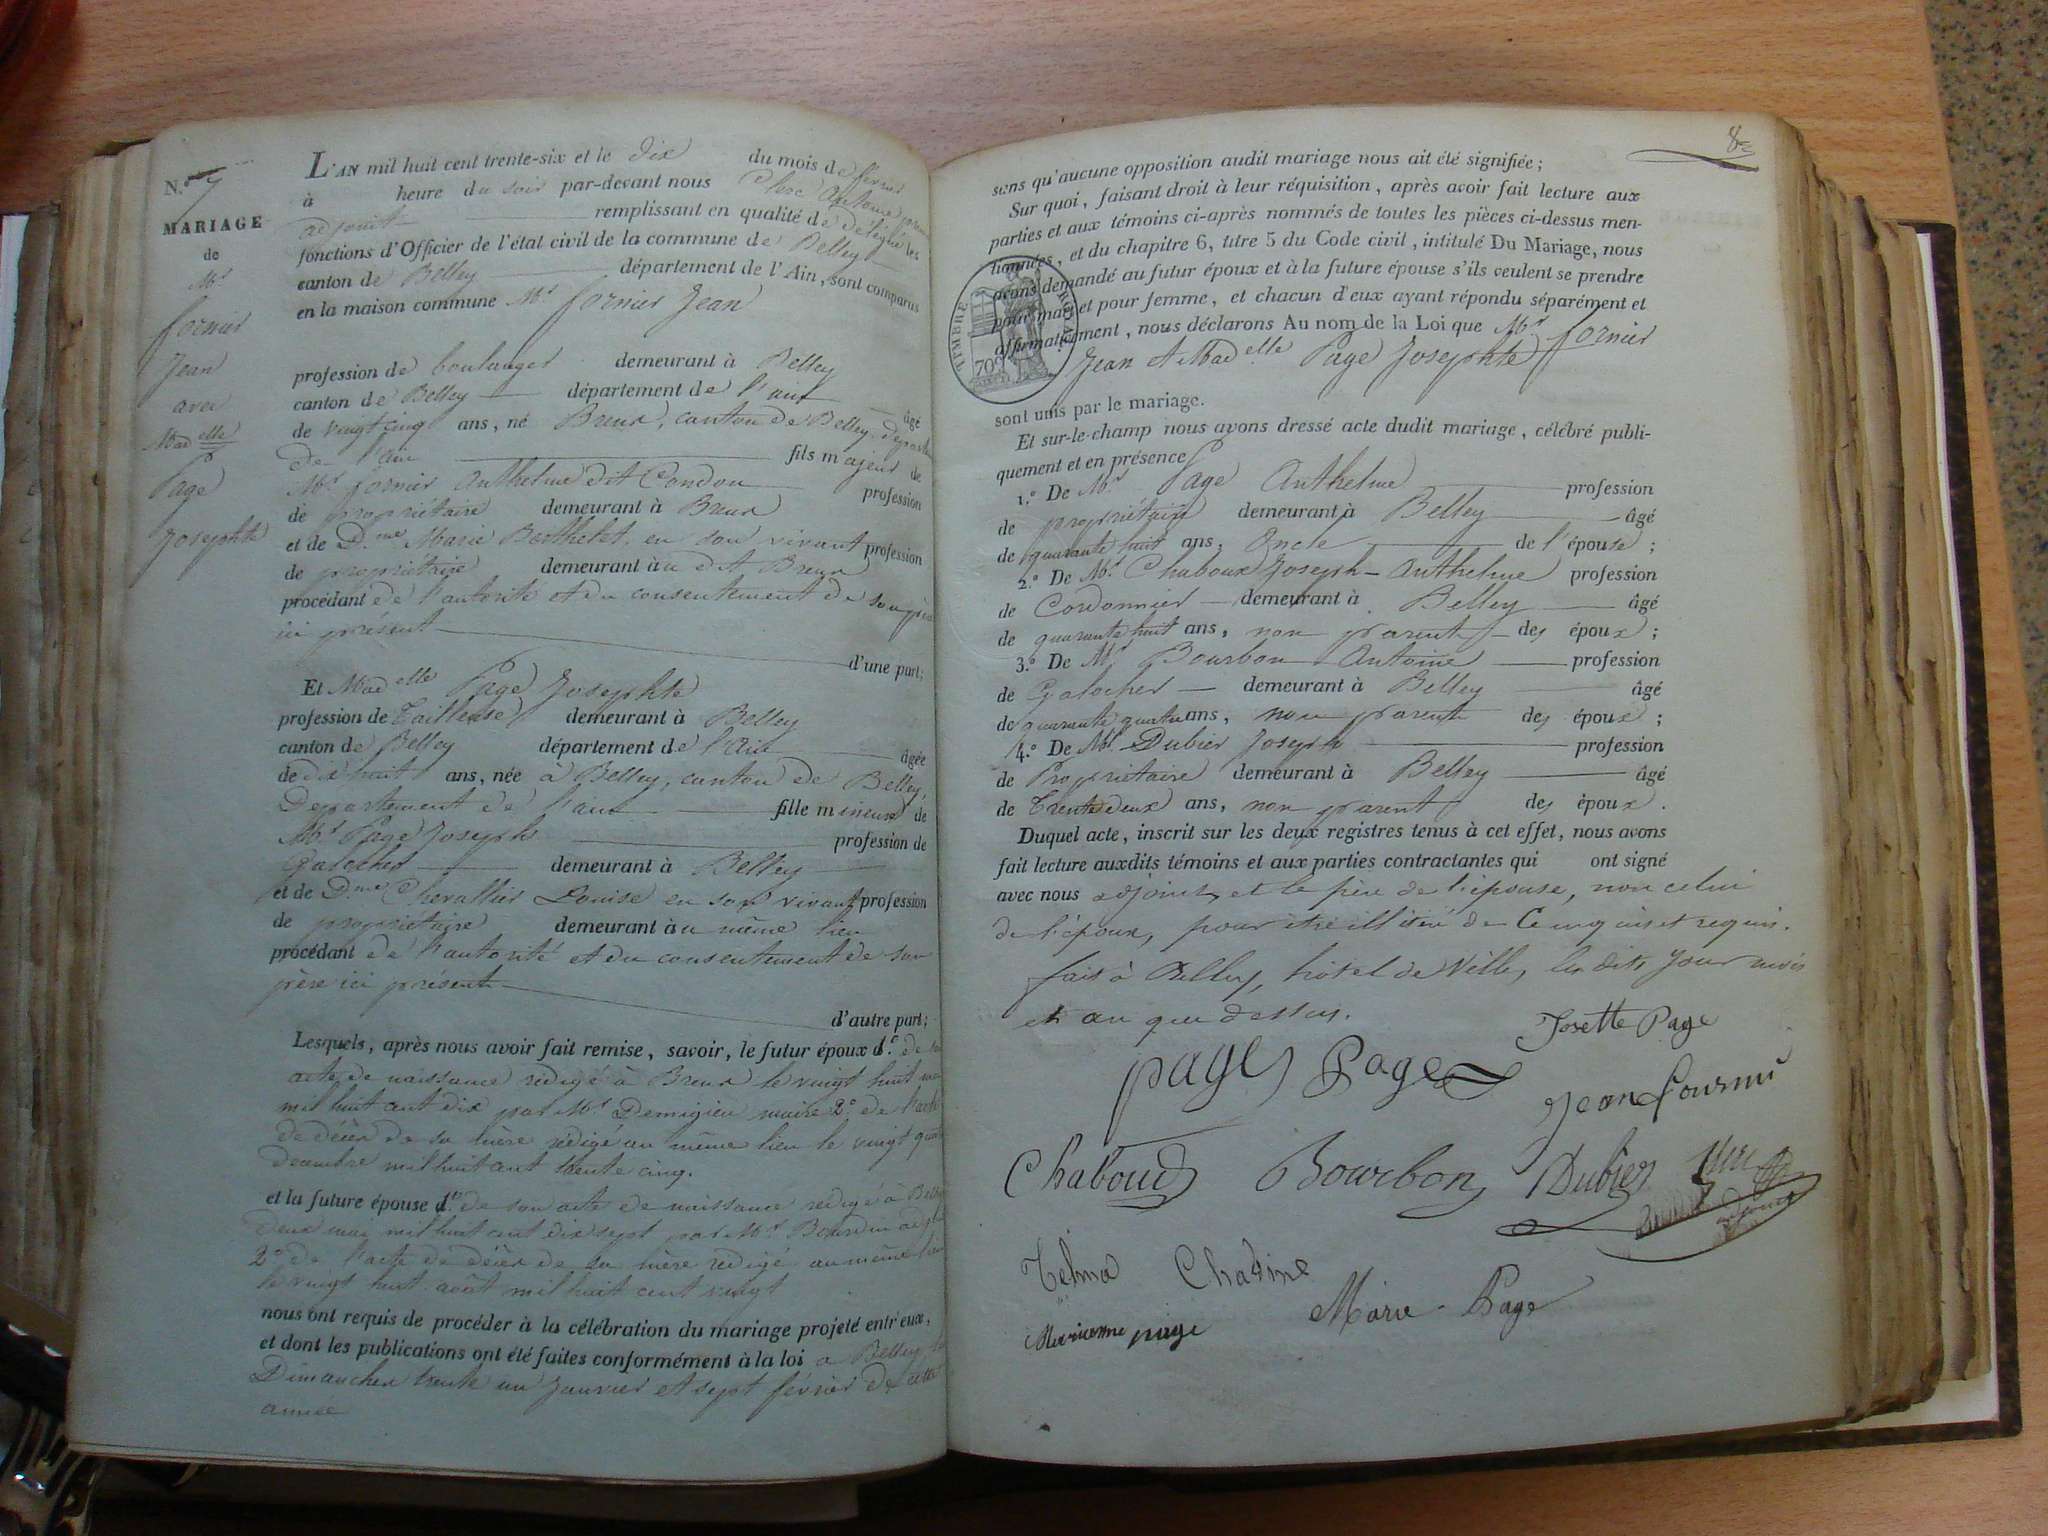 N.º 7
MARIAGE
de
Mr
fornier
Jean
avec
Madelle
Page
Josephte
L'AN mil huit cent trente-six et le dix du mois de février
à heure du soir par-devant nous Antoine
adjoint remplissant en qualité de délégué les
fonctions d'Officier de l'état civil de la commune de Belley
canton de Belley département de l'Ain, sont comparus
en la maison commune Mr fornier Jean
profession de boulanger demeurant à Belley
canton de Belley département de l'ain âgé
de vingt cinq ans, né Brens, canton de Belley, départ
de l'ain fils majeur de
Mr fornier Anthelme dit Condon profession
de propriétaire demeurant à Brens
et de Dme Marie Berthelet, en son vivant profession
de propriétaire demeurant au dit Brens
procédant de l'autorité et du consentement de son père
ici présent
d'une part;
Et Madelle Page Josephte
profession de Tailleuse demeurant à Belley
canton de Belley département de l'ain âgée
de dix huit ans, née à Belley, canton de Belley,
Departement de l'ain fille mineure de
Mr Page Joseph profession de
Galocher demeurant à Belley
et de Dme Chevallier Louise en son vivant profession
de propriétaire demeurant au même lieu
procédant de l'autorité et du consentement de son
père ici présent
d'autre part;
Lesquels, après nous avoir fait remise, savoir, le futur époux 1.º de son
acte de naissance redigé à Brens le vingt huit
mil huit cent dix par Mr Demigieu maire 2.º de l'acte
de décès de sa mère redigé au même lieu le vingt quatre
decembre mil huit cent trente cinq.
et la future épouse 1º de son acte de naissance redigé à Belley
deux mai mil huit cent dix sept par Mr Bourdin adjoint
2.º de l'acte de décès de sa mère redigé au même lieu
le vingt huit août mil huit cent vingt
nous ont requis de procéder à la célébration du mariage projeté entr'eux,
et dont les publications ont été faites conformément à la loi à Belley, les
Dimanches trente un Janvier et sept février de cette
année
8e
sans qu'aucune opposition audit mariage nous ait été signifiée;
Sur quoi, faisant droit à leur réquisition, après avoir fait lecture aux
parties et aux témoins ci-après nommés de toutes les pièces ci-dessus men-
tionnées, et du chapitre 6, titre 5 du Code civil, intitulé Du Mariage, nous
avons demandé au futur époux et à la future épouse s'ils veulent se prendre
pour mari et pour femme, et chacun d'eux ayant répondu séparément et
affirmativement, nous déclarons Au nom de la Loi que Mr fornier
Jean et Madelle Page Josephte
TIMBRE ROYAL
70c
sont unis par le mariage.
Et sur-le-champ nous avons dressé acte dudit mariage, célébré publi-
quement et en présence
1.º De Mr Page Anthelme profession
de propriétaire demeurant à Belley âgé
de quarante huit ans, Oncle de l'épouse;
2.º De Mr Chaboux Joseph-Anthelme profession
de Cordonnier demeurant à Belley âgé
de quarante huit ans, non parent des époux;
3.º De Mr Bourbon Antoine profession
de Galocher demeurant à Belley âgé
de quarante quatre ans, non parent des époux;
4.º De Mr Dubier Joseph profession
de Propriétaire demeurant à Belley âgé
de Trente deux ans, non parent des époux.
Duquel acte, inscrit sur les deux registres tenus à cet effet, nous avons
fait lecture auxdits témoins et aux parties contractantes qui ont signé
avec nous adjoint et le père de l'épouse, non celui
de l'époux, pour être illitéré de ce enquis et requis.
fait à Belley, hôtel de Ville, les dits jour mois
et an que dessus.
Josette Page
pages Page
Jean fournié
Chaboud Bourbon Dubier
Telma Chadine
Marie Page
Marienne page